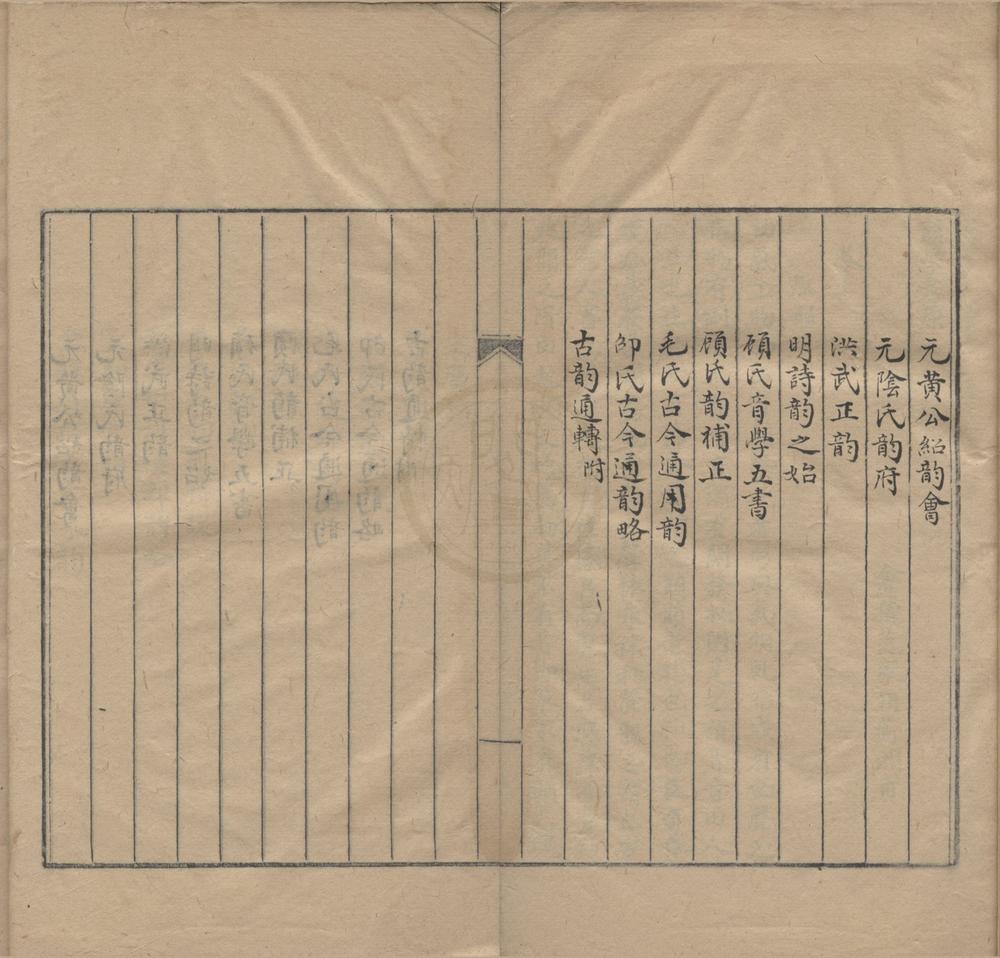 元黄公紹韵會
元陰氏韵府
洪武正韵
明詩韵之始
顧氏音學五書
顧氏韵補正
毛氏古今通用韵
邵氏古今通韵略
古韵通轉附